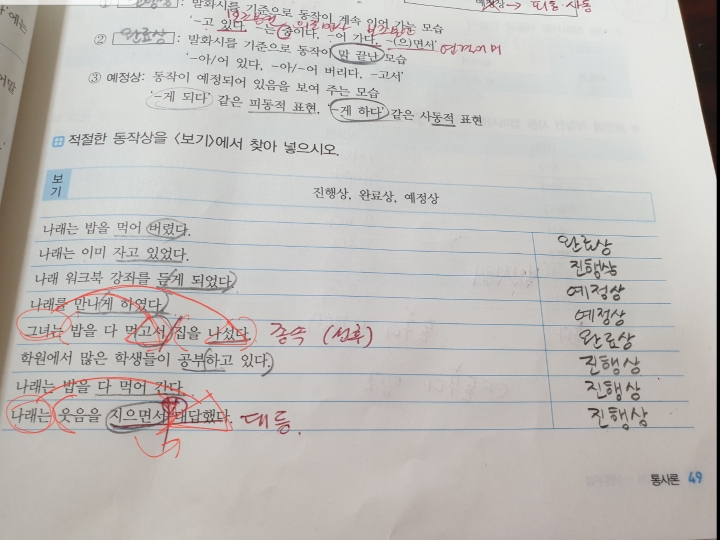 ① 진행상 : 발화시를 기준으로 동작이 계속 이어 가는 모습
‘-고 있다, -는 중이다, -어 가다, -(으)면서’
② 완료상 : 발화시를 기준으로 동작이 막 끝난 모습
‘-아/어 있다, -아/-어 버리다, -고서’
③ 예정상: 동작이 예정되어 있음을 보여 주는 모습
‘-게 되다’ 같은 피동적 표현, ‘-게 하다’ 같은 사동적 표현
적절한 동작상을 <보기>에서 찾아 넣으시오.
보기
진행상, 완료상, 예정상
나래는 밥을 먹어 버렸다. 완료상
나래는 이미 자고 있었다. 진행상
나래 워크북 강좌를 듣게 되었다. 예정상
나래를 만나게 하였다. 예정상
그녀는 밥을 다 먹고서 집을 나섰다. 종속 (선후) 완료상
학원에서 많은 학생들이 공부하고 있다. 진행상
나래는 밥을 다 먹어 간다. 진행상
나래는 웃음을 지으면서 대답했다. 대등. 진행상
통사론 49